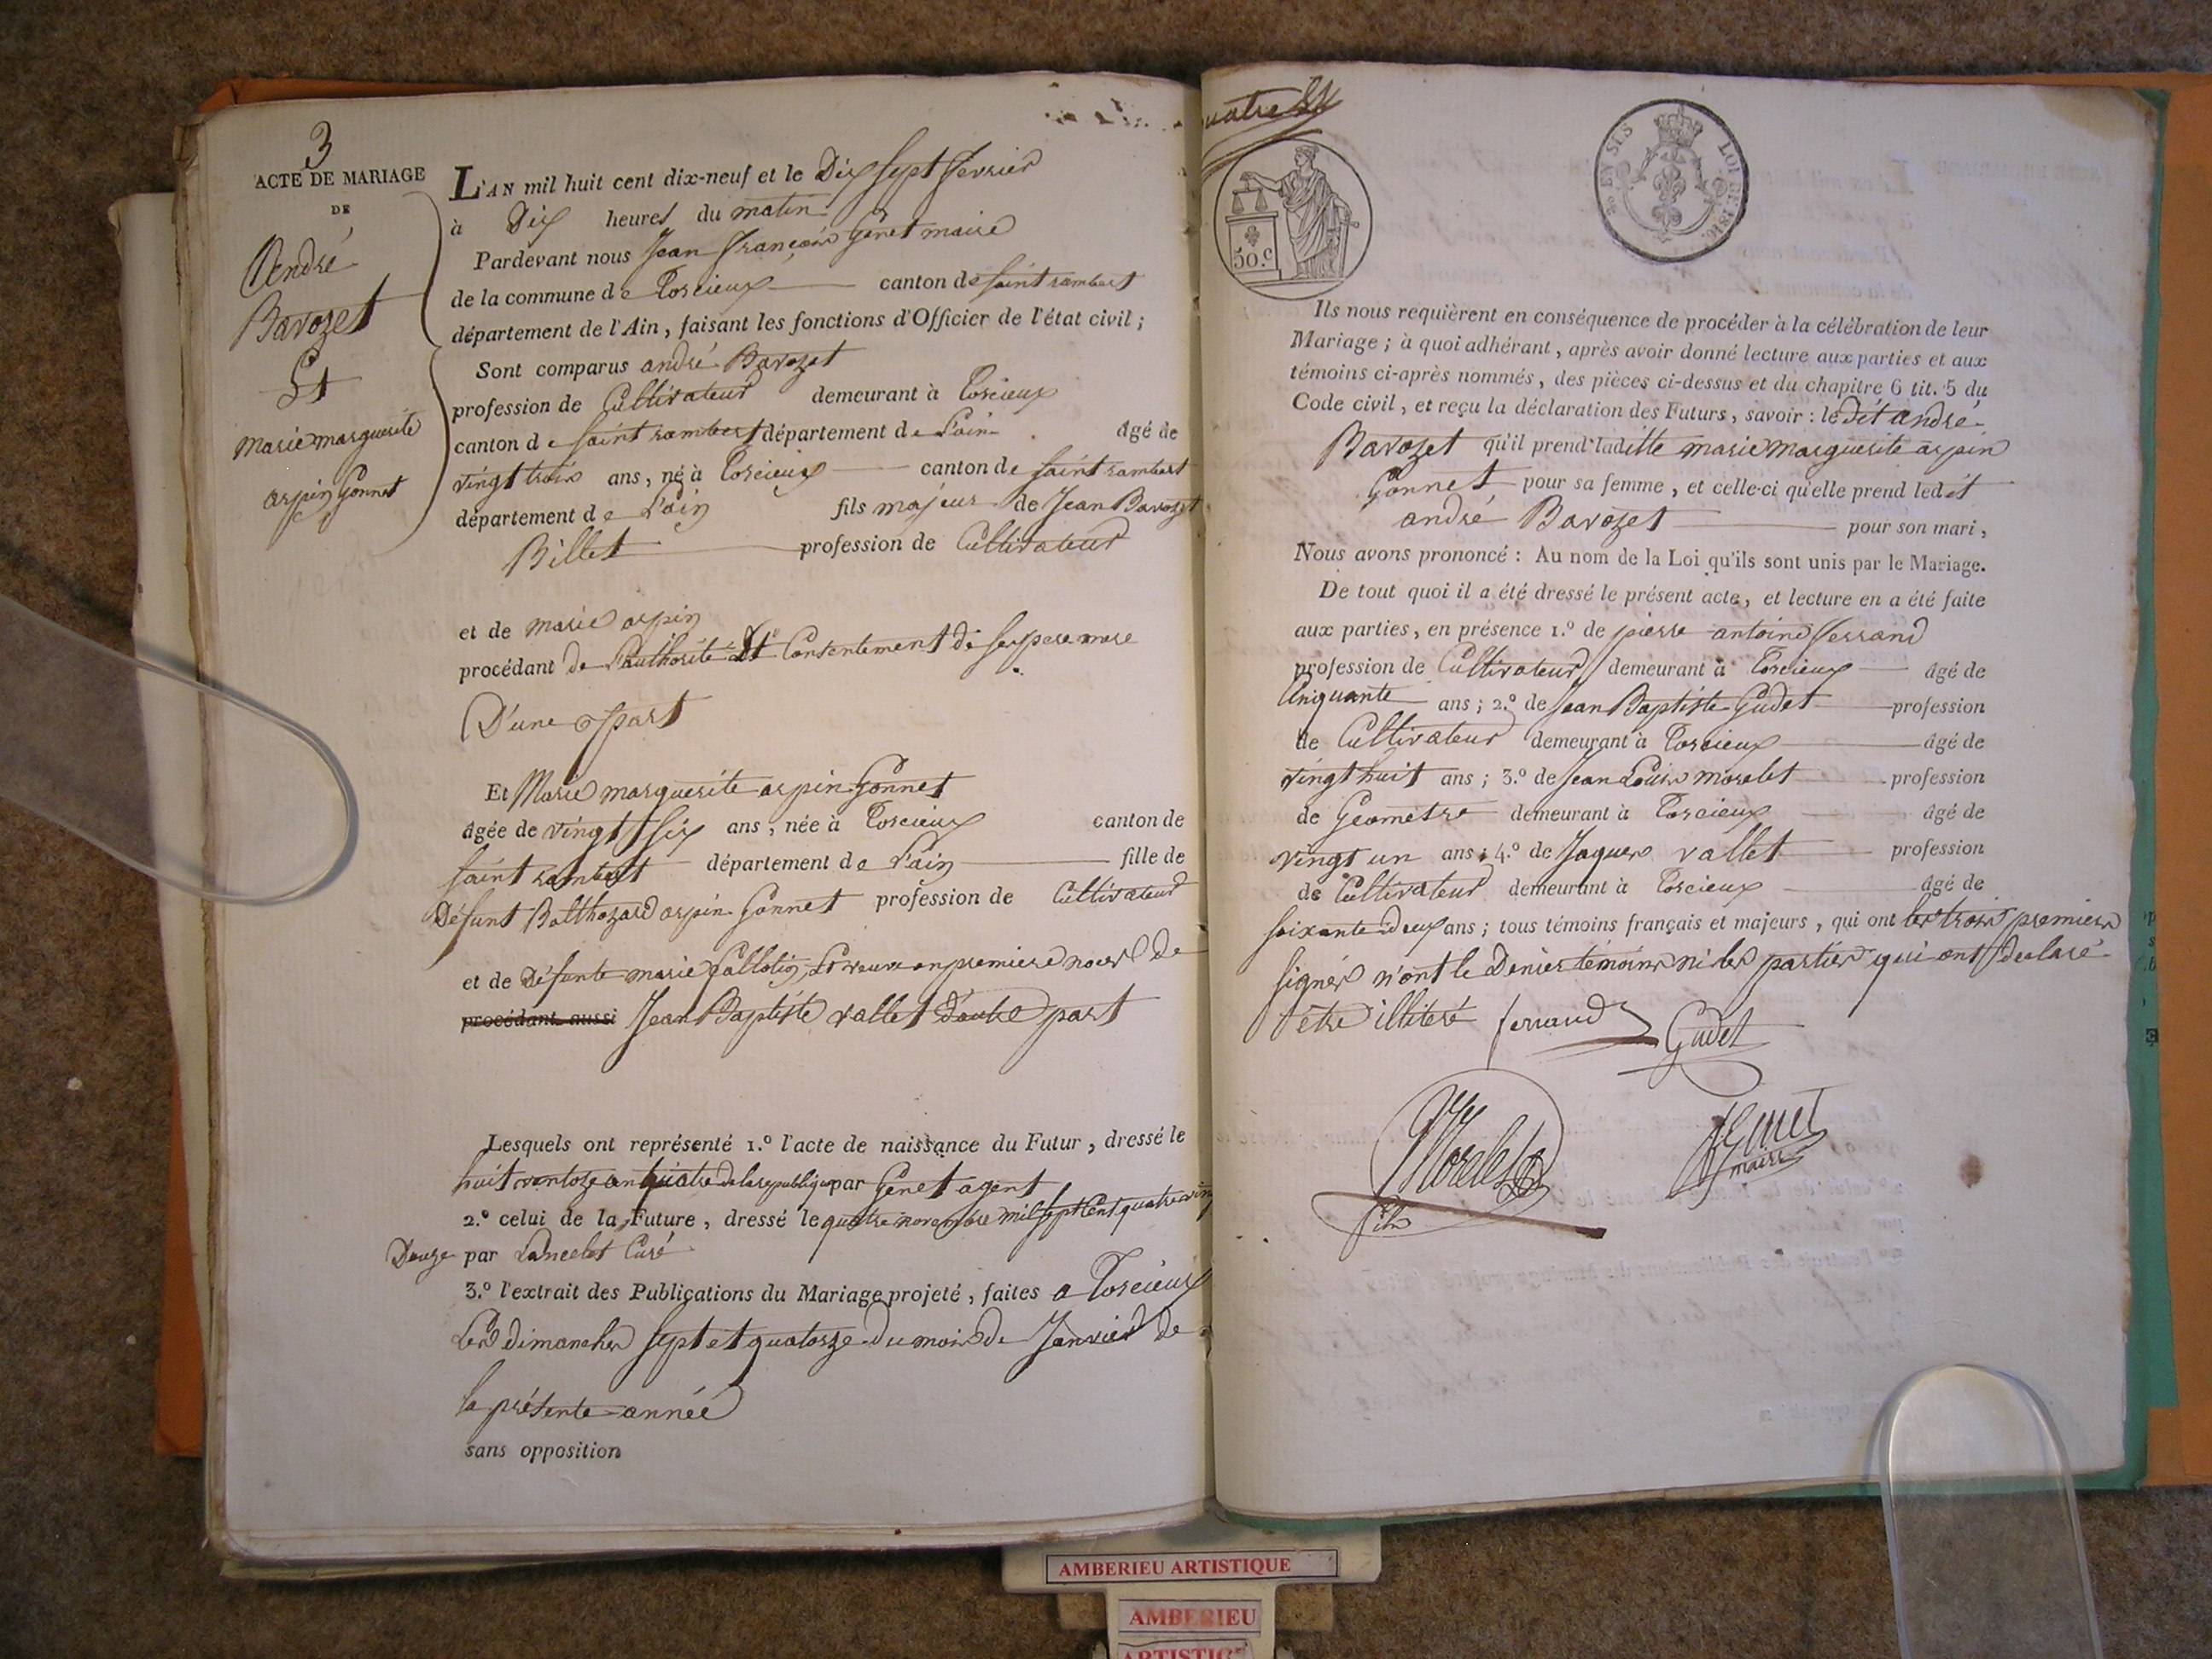 3
ACTE DE MARIAGE
DE
André
Bavozet
Et
marie marguerite
arpin Gonnet
L'AN mil huit cent dix-neuf et le Dix sept fevrier
à Dix heures du matin
Pardevant nous Jean françois Genet maire
de la commune de Torcieux canton de saint rambert
département de l'Ain, faisant les fonctions d'Officier de l'état civil;
Sont comparus andré Bavozet
profession de Cultivateur demeurant à Torcieux
canton de saint rambert département de L'ain âgé de
vingt trois ans, né à Torcieux canton de saint rambert
département de L'ain fils majeur de Jean Bavozet
Billet profession de Cultivateur
et de marie arpin
procédant de L'authorité Et Consentement de ses pere mere
D'une part
Et Marie marguerite arpin Gonnet
âgée de vingt six ans, née à Torcieux canton de
saint rambert département de L'ain fille de
Défunt Balthazard arpin Gonnet profession de Cultivateur
et de Défunte marie Et veuve en premiere noces de
procédant aussi Jean Baptiste vallet d'autre part
Lesquels ont représenté 1.º l'acte de naissance du Futur, dressé le
huit ventoze an quatre de la republique par Genet agent
2.º celui de la Future, dressé le quatre novembre mil sept cent quatre vingt
Douze par Lancelot Curé
3.º l'extrait des Publications du Mariage projeté, faites a Torcieux
Les dimanches sept et quatorze du mois de Janvier de
la présente année
sans opposition
uatre
50.c
LOI DE 1816.
Ils nous requièrent en conséquence de procéder à la célébration de leur
Mariage; à quoi adhérant, après avoir donné lecture aux parties et aux
témoins ci-après nommés, des pièces ci-dessus et du chapitre 6 tit. 5 du
Code civil, et reçu la déclaration des Futurs, savoir: le dit andré
Bavozet qu'il prend laditte marie marguerite arpin
Gonnet pour sa femme, et celle-ci qu'elle prend ledit
andré Bavozet pour son mari,
Nous avons prononcé: Au nom de la Loi qu'ils sont unis par le Mariage.
De tout quoi il a été dressé le présent acte, et lecture en a été faite
aux parties, en présence 1.º de pierre antoine ferrand
profession de Cultivateur demeurant à Torcieux âgé de
Cinquante ans; 2.º de Jean Baptiste Gudet profession
de Cultivateur demeurant à Torcieux âgé de
vingt huit ans; 3.º de Jean Louis morelet profession
de Geometre demeurant à Torcieux âgé de
vingt un ans; 4.º de Jaques vallet profession
de Cultivateur demeurant à Torcieux âgé de
soixante deux ans; tous témoins français et majeurs, qui ont les trois premiers
signés n'ont le Denier témoins ni les parties qui ont declaré
être illiteré ferrand Gudet
Morelet
fils
Genet
maire
AMBERIEU ARTISTIQUE
AMBERIEU